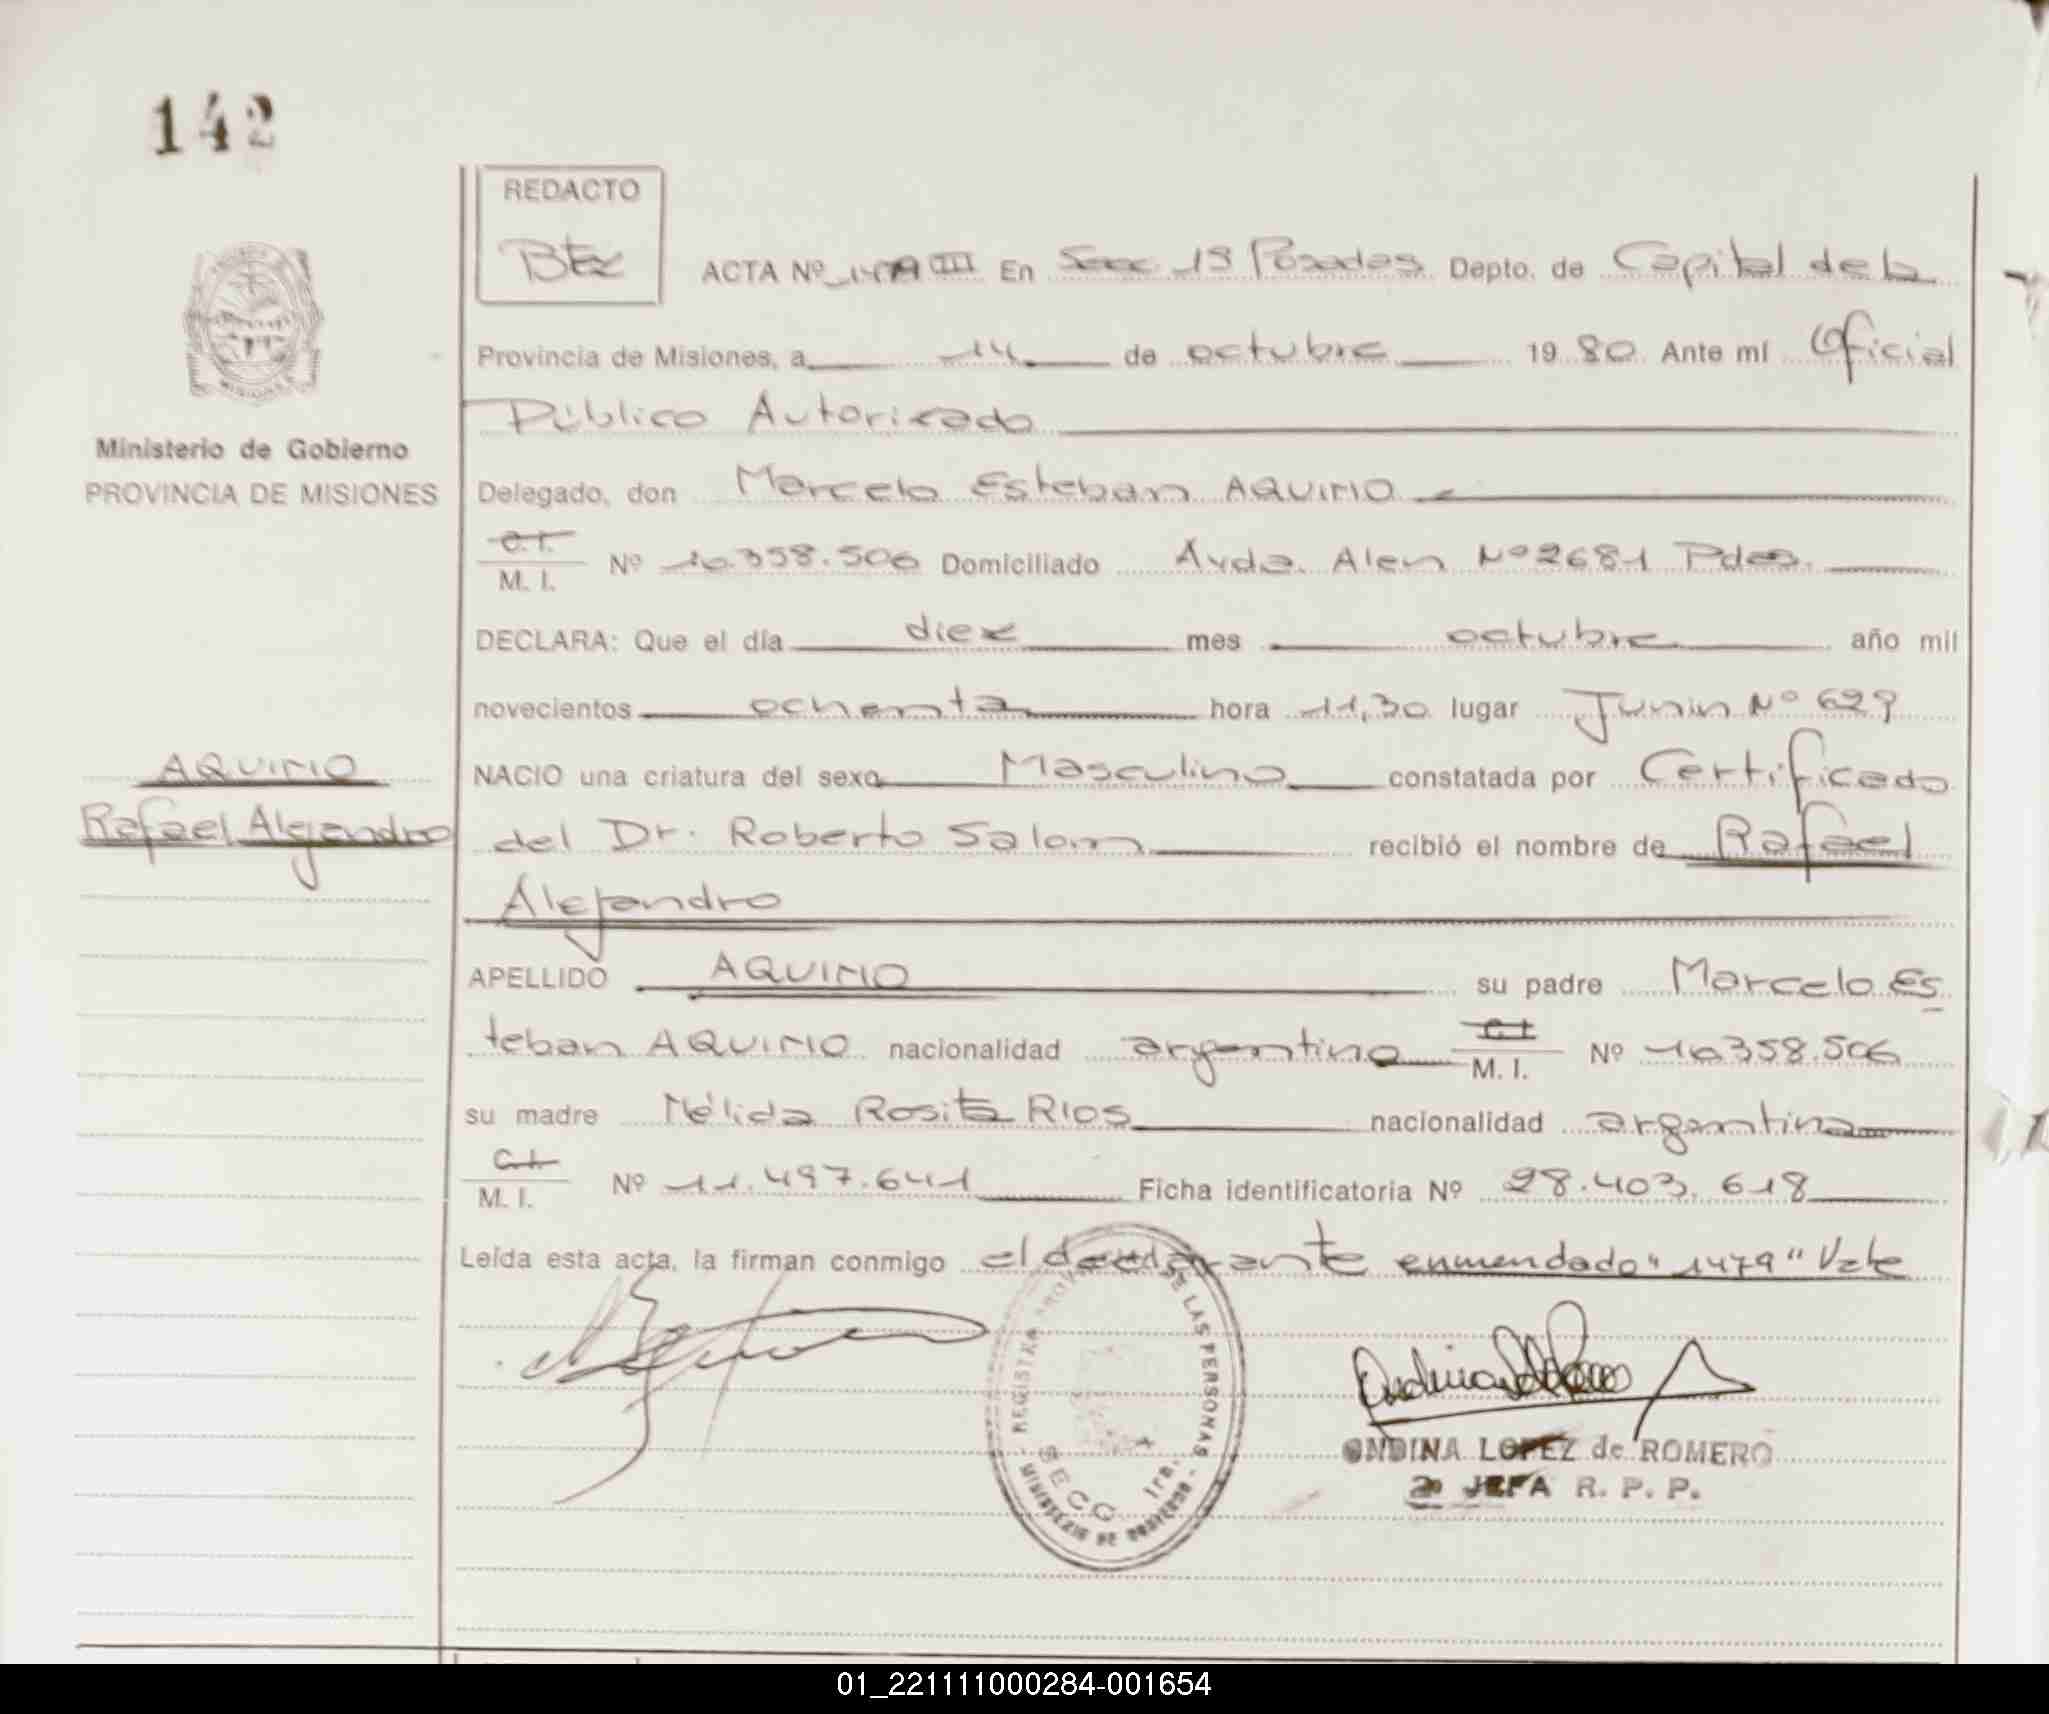 142
REDACTO
Btz
ACTA Nº 1479 III En Secc. 1ª Posadas Depto. de Capital de la
Provincia de Misiones, a 14 de octubre 1980 Ante mí Oficial
Público Autorizado
Ministerio de Gobierno
PROVINCIA DE MISIONES
Delegado, don Marcelo Esteban AQUINO
C.I.
M. I. Nº 10.358.506 Domiciliado Avda. Alen Nº 2681 Pdas.
DECLARA: Que el día diez mes octubre año mil
novecientos ochenta hora 11,30 lugar Junin Nº 629
AQUINO
Rafael Alejandro
NACIO una criatura del sexo Masculino constatada por Certificado
del Dr. Roberto Salom recibió el nombre de Rafael
Alejandro
APELLIDO AQUINO su padre Marcelo Es
teban AQUINO nacionalidad argentina C.I.
M. I. Nº 10358.506
su madre Nélida Rosita RIOS nacionalidad argentina
C.I.
M. I. Nº 11.497.641 Ficha identificatoria Nº 28.403.618
Leída esta acta, la firman conmigo el declarante enmendado "1479" Vale
REGISTRO PROV. DE LAS PERSONAS
SECC. 1ra.
MINISTERIO DE GOBIERNO
ONDINA LOPEZ de ROMERO
2ª JEFA R. P. P.
01_221111000284-001654